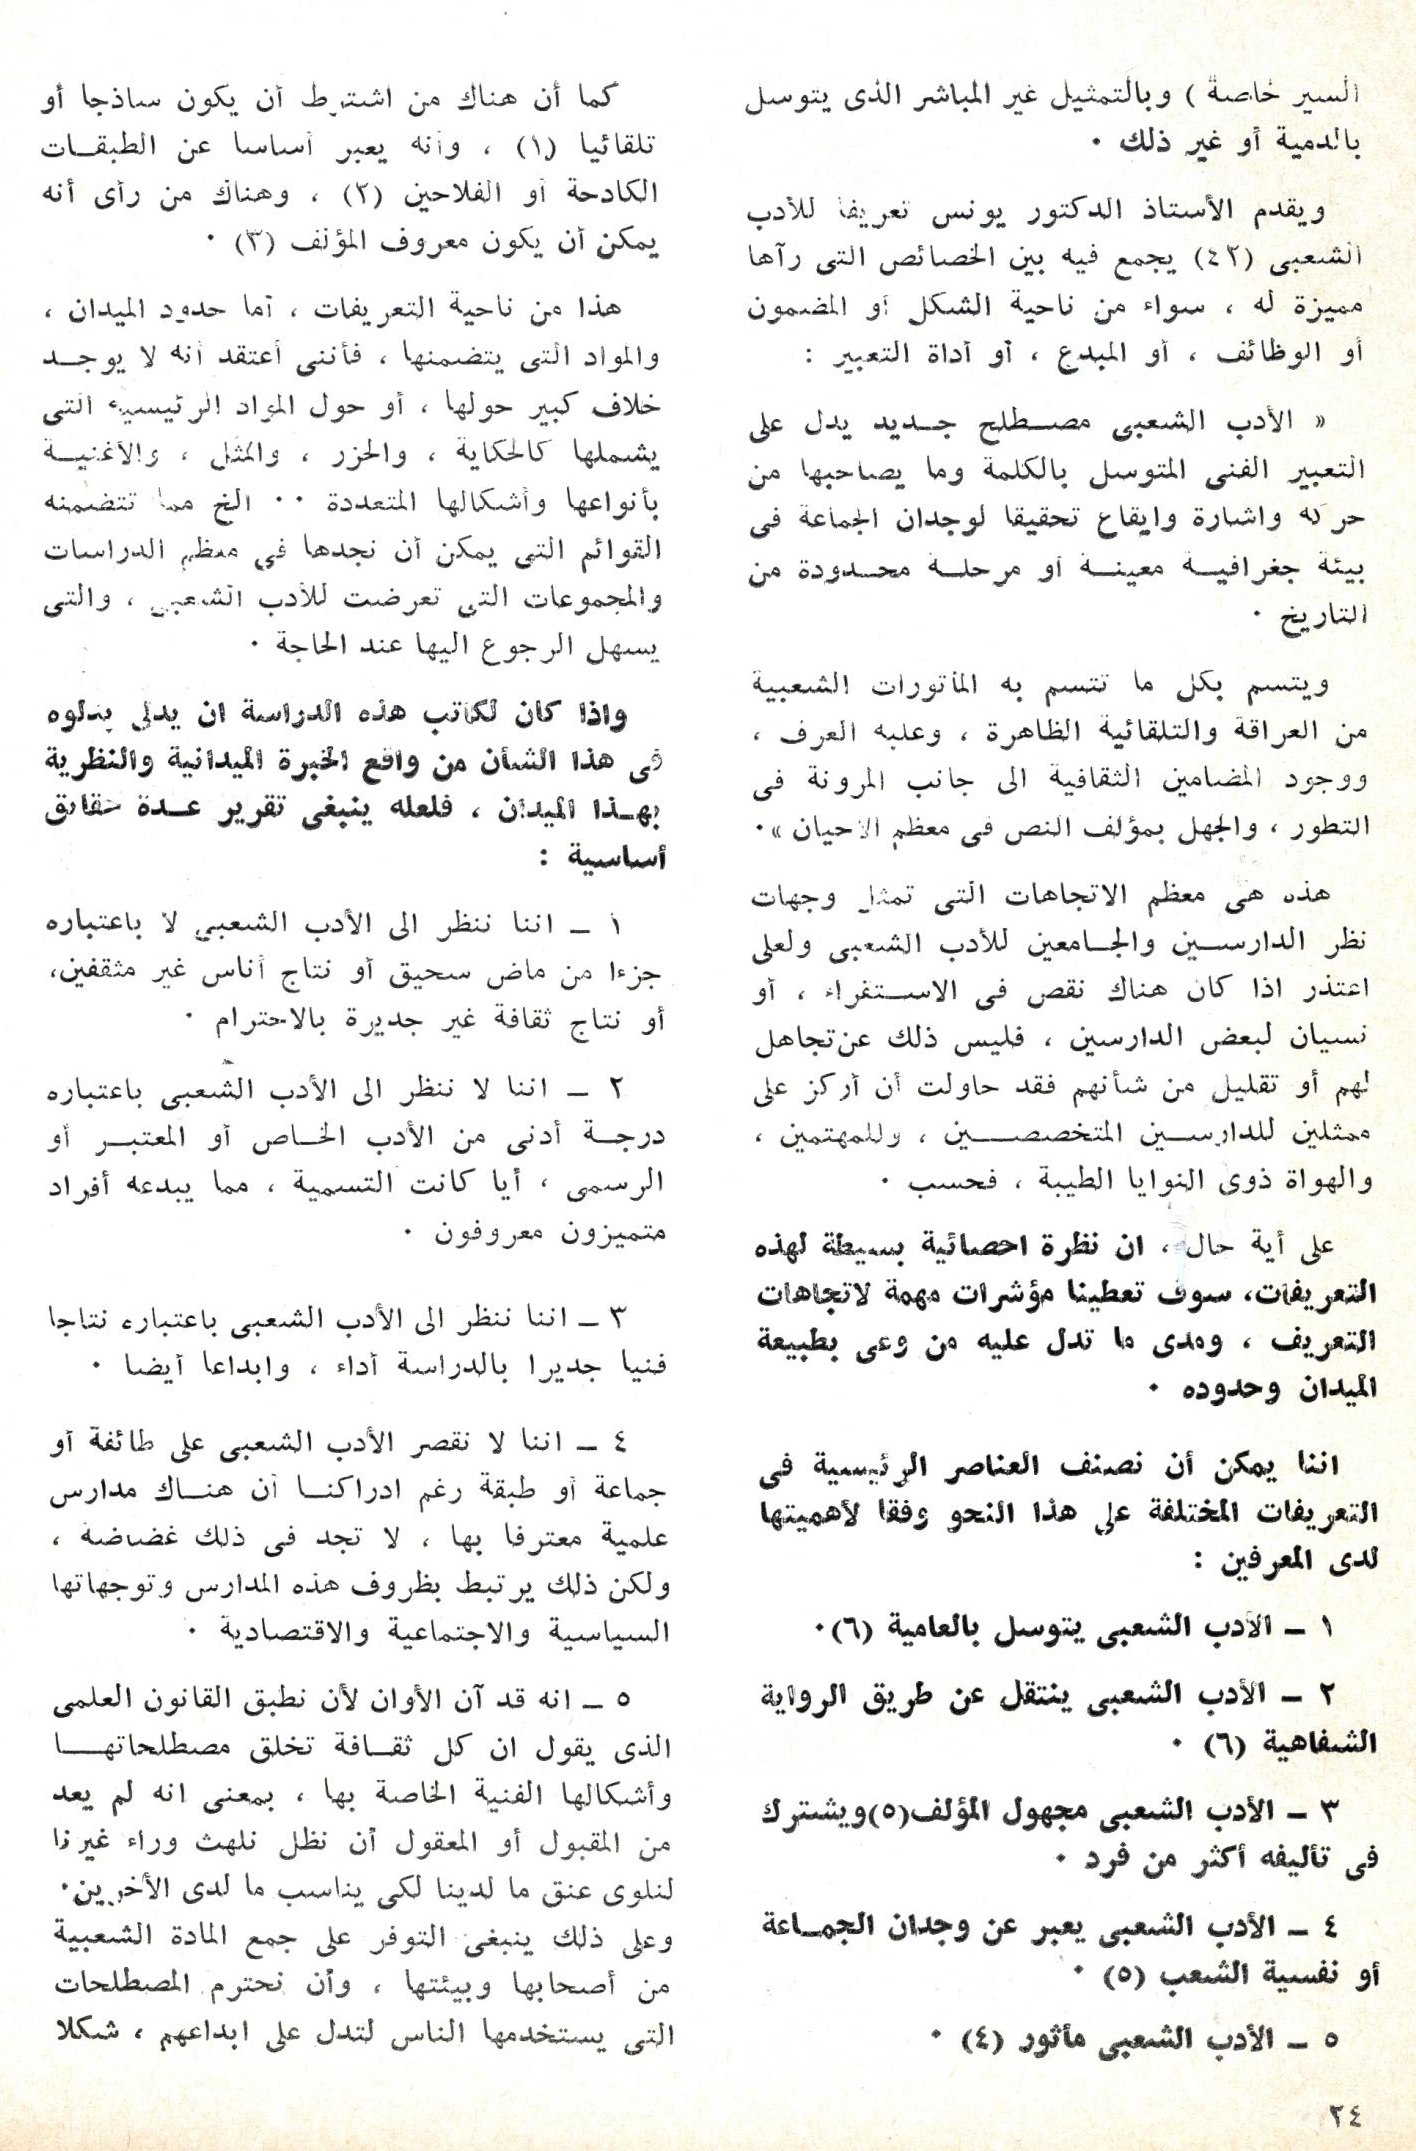 السير خاصة ) وبالتمثيل غير المباشر الذى يتوسل
بالدمية أو غير ذلك ٠
ويقدم الأستاذ الدكتور يونس تعريفا للأدب
الشعبى (٤٢) يجمع فيه بين الخصائص التى رآها
مميزة له ، سواء من ناحية الشكل أو المضمون
أو الوظائف ، أو المبدع ، أو أداة التعبير :
« الأدب الشعبى مصطلح جديد يدل على
التعبير الفنى المتوسل بالكلمة وما يصاحبها من
حركة واشارة وايقاع تحقيقا لوجدان الجماعة فى
بيئة جغرافية معينة أو مرحلة محدودة من
التاريخ ٠
ويتسم بكل ما تتسم به المأثورات الشعبية
من العراقة والتلقائية الظاهرة ، وغلبه العرف ،
ووجود المضامين الثقافية الى جانب المرونة فى
التطور ، والجهل بمؤلف النص فى معظم الأحيان »٠
هذه هى معظم الاتجاهات التى تمثل وجهات
نظر الدارسين والجامعين للأدب الشعبى ولعلى
اعتذر اذا كان هناك نقص فى الاستقراء ، أو
نسيان لبعض الدارسين ، فليس ذلك عن تجاهل
لهم أو تقليل من شأنهم فقد حاولت أن أركز على
ممثلين للدارسين المتخصصين ، وللمهتمين ،
والهواة ذوى النوايا الطيبة ، فحسب ٠
على أية حال ، ان نظرة احصائية بسيطة لهذه
التعريفات، سوف تعطينا مؤشرات مهمة لاتجاهات
التعريف ، ومدى ما تدل عليه من وعى بطبيعة
الميدان وحدوده ٠
اننا يمكن أن نصنف العناصر الرئيسية فى
التعريفات المختلفة على هذا النحو وفقا لأهميتها
لدى المعرفين :
١ ـ الأدب الشعبى يتوسل بالعامية (٦)٠
٢ ـ الأدب الشعبى ينتقل عن طريق الرواية
الشفاهية (٦) ٠
٣ ـ الأدب الشعبى مجهول المؤلف(٥)ويشترك
فى تأليفه أكثر من فرد ٠
٤ ـ الأدب الشعبى يعبر عن وجدان الجماعة
أو نفسية الشعب (٥) ٠
٥ ـ الأدب الشعبى مأثور (٤) ٠
كما أن هناك من اشترط أن يكون ساذجا أو
تلقائيا (١) ، وأنه يعبر أساسا عن الطبقات
الكادحة أو الفلاحين (٢) ، وهناك من رأى أنه
يمكن أن يكون معروف المؤلف (٣) ٠
هذا من ناحية التعريفات ، أما حدود الميدان ،
والمواد التى يتضمنها ، فأننى أعتقد أنه لا يوجد
خلاف كبير حولها ، أو حول المواد الرئيسية التى
يشملها كالحكاية ، والحزر ، والمثل ، والأغنية
بأنواعها وأشكالها المتعددة ٠٠ الخ مما تتضمنه
القوائم التى يمكن أن نجدها فى معظم الدراسات
والمجموعات التى تعرضت للأدب الشعبى ، والتى
يسهل الرجوع اليها عند الحاجة ٠
واذا كان لكاتب هذه الدراسة ان يدلى بدلوه
فى هذا الشأن من واقع الخبرة الميدانية والنظرية
بهذا الميدان ، فلعله ينبغى تقرير عدة حقائق
أساسية :
١ ـ اننا ننظر الى الأدب الشعبى لا باعتباره
جزءا من ماض سحيق أو نتاج أناس غير مثقفين،
أو نتاج ثقافة غير جديرة بالاحترام ٠
٢ ـ اننا لا ننظر الى الأدب الشعبى باعتباره
درجة أدنى من الأدب الخاص أو المعتبر أو
الرسمى ، أيا كانت التسمية ، مما يبدعه أفراد
متميزون معروفون ٠
٣ ـ اننا ننظر الى الأدب الشعبى باعتباره نتاجا
فنيا جديرا بالدراسة أداء ، وابداعا أيضا ٠
٤ ـ اننا لا نقصر الأدب الشعبى على طائفة أو
جماعة أو طبقة رغم ادراكنا أن هناك مدارس
علمية معترفا بها ، لا تجد فى ذلك غضاضة ،
ولكن ذلك يرتبط بظروف هذه المدارس وتوجهاتها
السياسية والاجتماعية والاقتصادية ٠
٥ ـ انه قد آن الأوان لأن نطبق القانون العلمى
الذى يقول ان كل ثقافة تخلق مصطلحاتها
وأشكالها الفنية الخاصة بها ، بمعنى انه لم يعد
من المقبول أو المعقول أن نظل نلهث وراء غيرنا
لنلوى عنق ما لدينا لكى يناسب ما لدى الأخرين٠
وعلى ذلك ينبغى التوفر على جمع المادة الشعبية
من أصحابها وبيئتها ، وأن نحترم المصطلحات
التى يستخدمها الناس لتدل على ابداعهم ، شكلا
٢٤